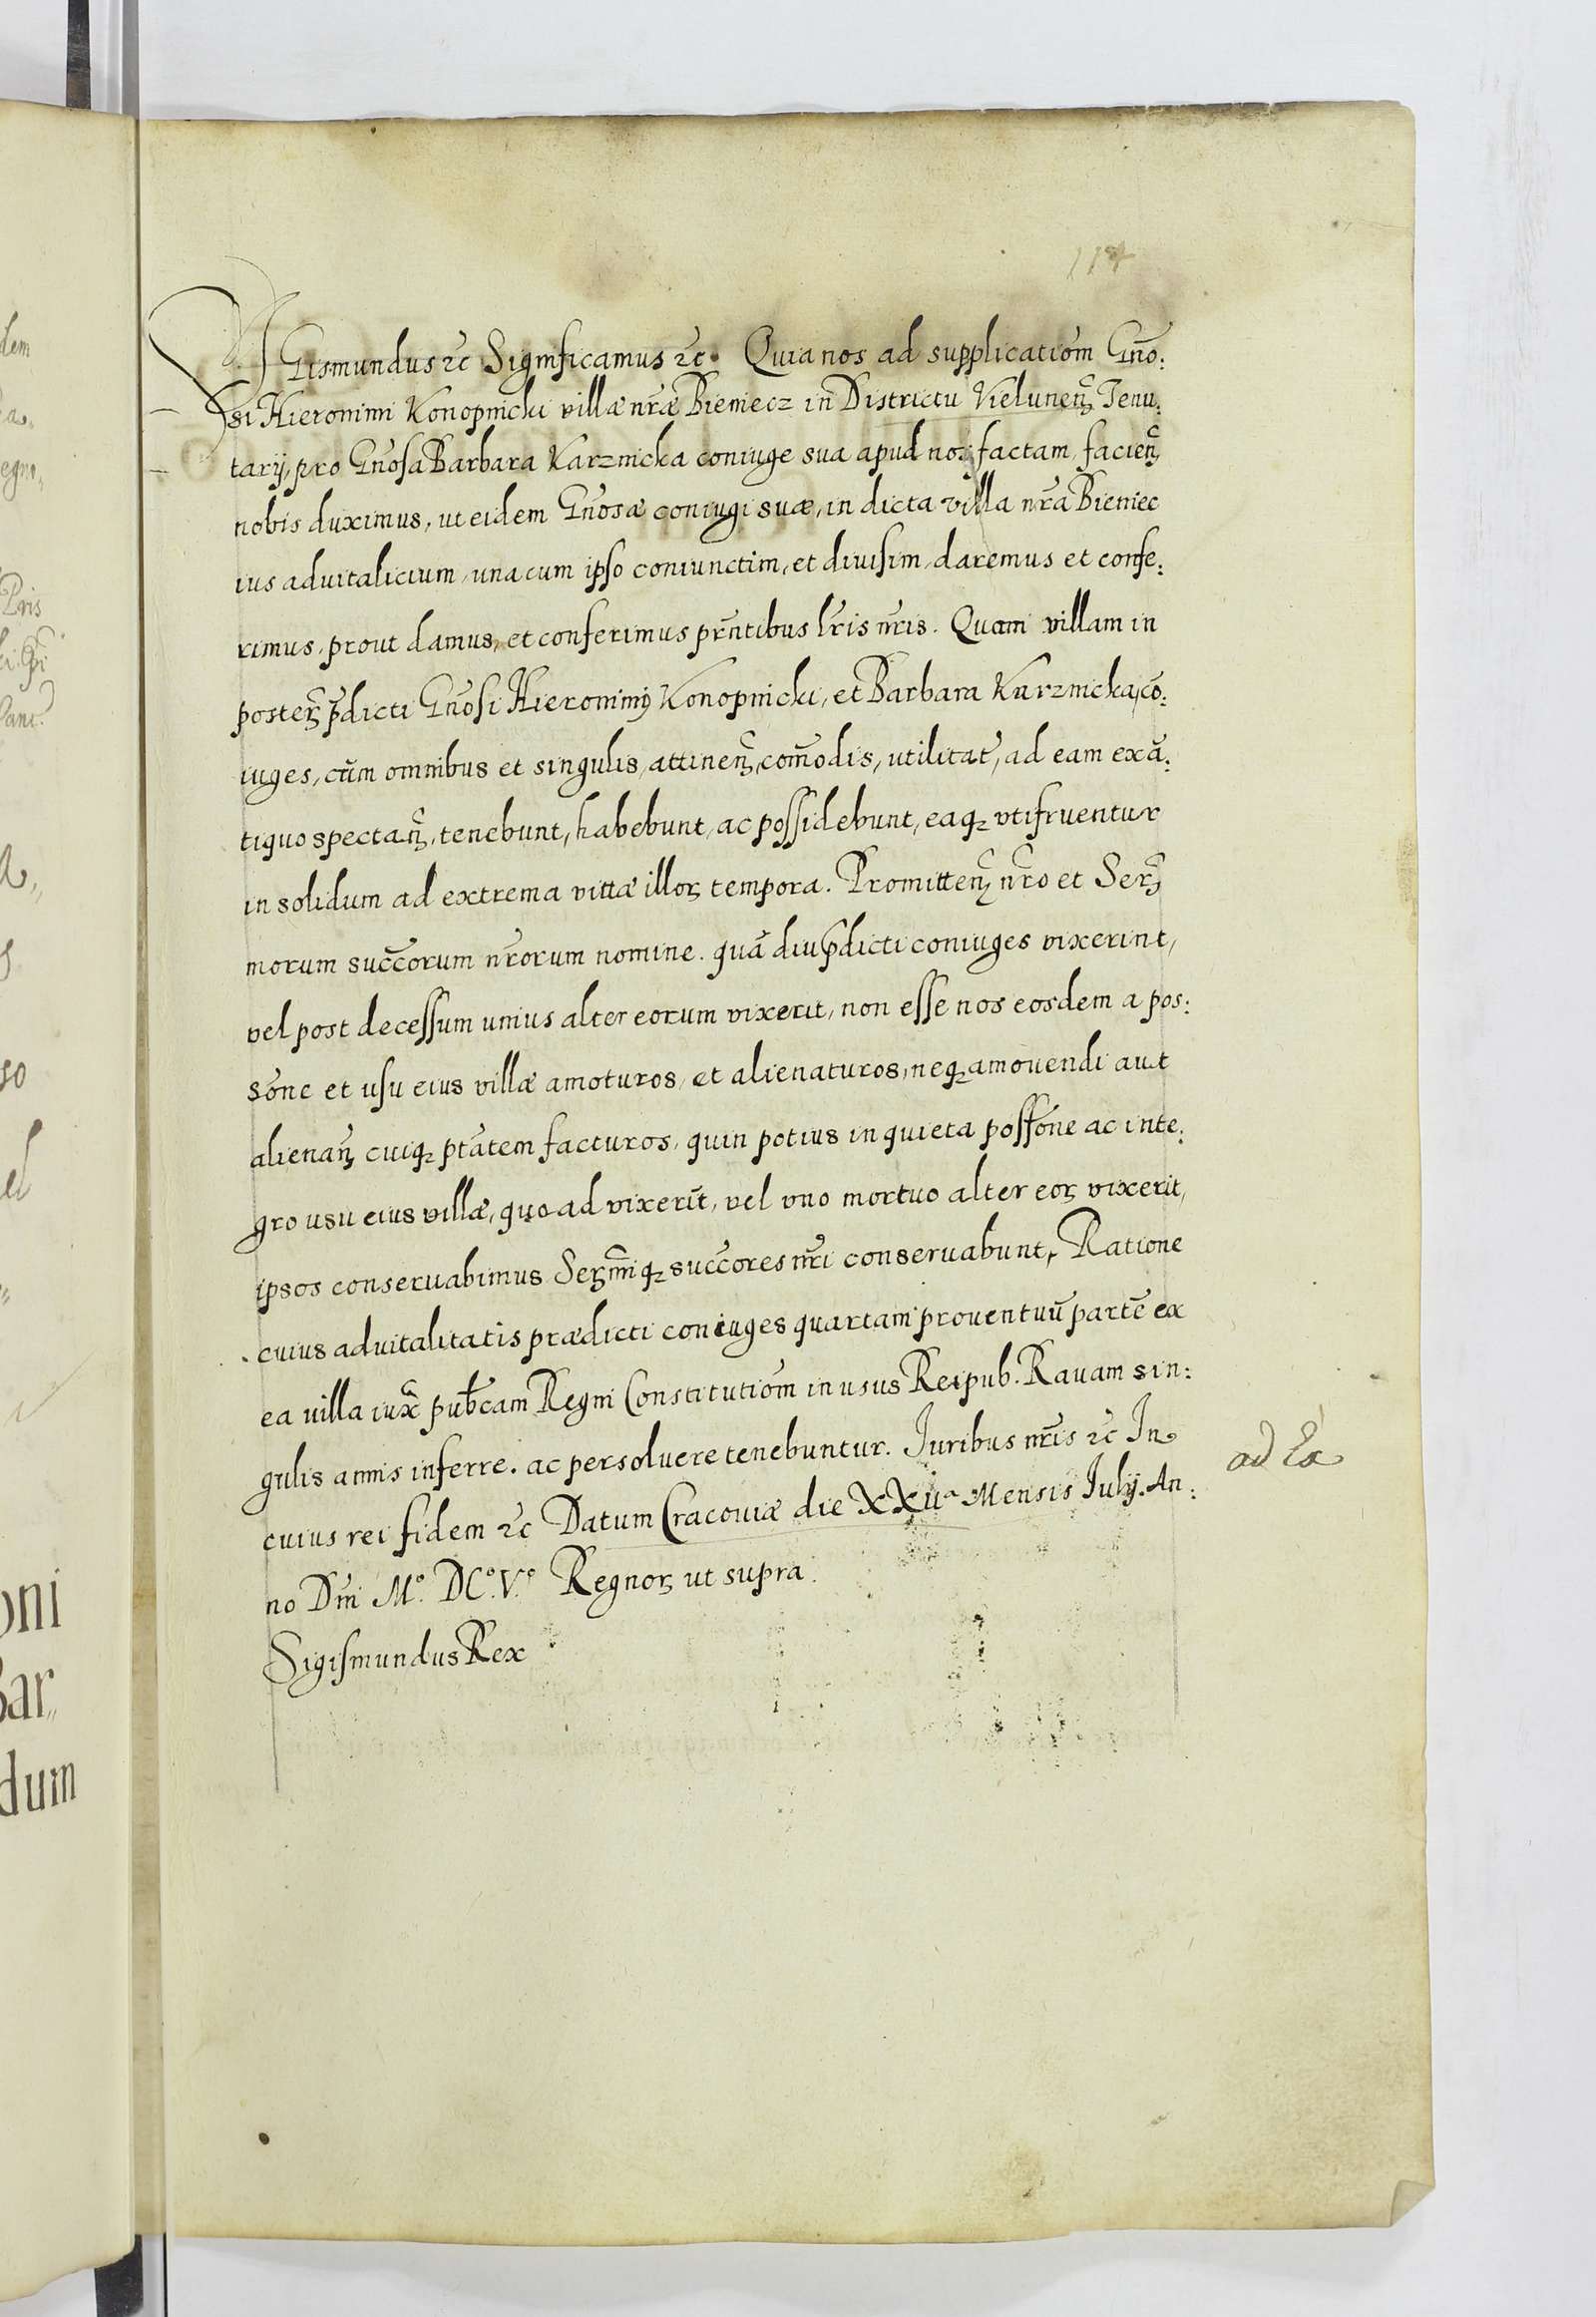 114
SIGismundus etc Significamus etc. Quia nos ad supplicatiōm Gn̄o:
si Hieronimi Konopnicki villæ nr̄æ Bieniecz in Districtu Vielunen̄ Tenu:
tarij, pro Gn̄osa Barbara Karznicka coniuge sua apud nos factam, facien̄
nobis duximus, ut eidem Gn̄osæ coniugi suæ, in dicta villa nr̄a Bieniec
ius aduitalicium, una cum ipso coniunctim, et diuisim, daremus et confe:
rimus, prout damus, et conferimus pr̄ntibus lr̄is nr̄is. Quam villam in
poster̄ p̄dicti Gn̄osi Hieronimus Konopnicki, et Barbara Karznicka, cō:
iuges, cūm omnibus et singulis, attinen̄, com̄odis, utilitat̄, ad eam ex ā:
tiquo spectan̄, tenebunt, habebunt, ac possidebunt, eaq; vtifruentur
in solidum ad extrema vittæ illoꝝ tempora. Promitten̄ nr̄o et Ser̄
morum succ̄orum nr̄orum nomine. quā diu p̄dicti coniuges vixerint,
vel post decessum unius alter eorum vixerit, non esse nos eosdem a pos:
sōne et usu eius villæ amoturos, et alienaturos, neq; amouendi aut
alienan̄ cuiq; ptātem facturos, quin potius in quieta possōne ac inte:
gro usu eius villæ, quo ad vixerīt, vel vno mortuo alter eoꝝ vixerit,
ipsos conseruabimus Ser̄miq; succ̄ores nr̄i conseruabunt, Ratione
cuius aduitalitatis prædicti coniuges quartam prouentuū partē ex
ea villa iux̄ pub̄cam Regni Constitutiōm in usus Reipub. Rauam sin:
gulis annis inferre. ac persoluere tenebuntur. Iuribus nr̄is etc In
ad Ea
cuius rei fidem etc Datum Cracouiæ die XXiiᵃ Mensis Iulij. An:
no Dm̄i M°. DC°. V°. Regnoꝝ ut supra.
Sigismundus Rex